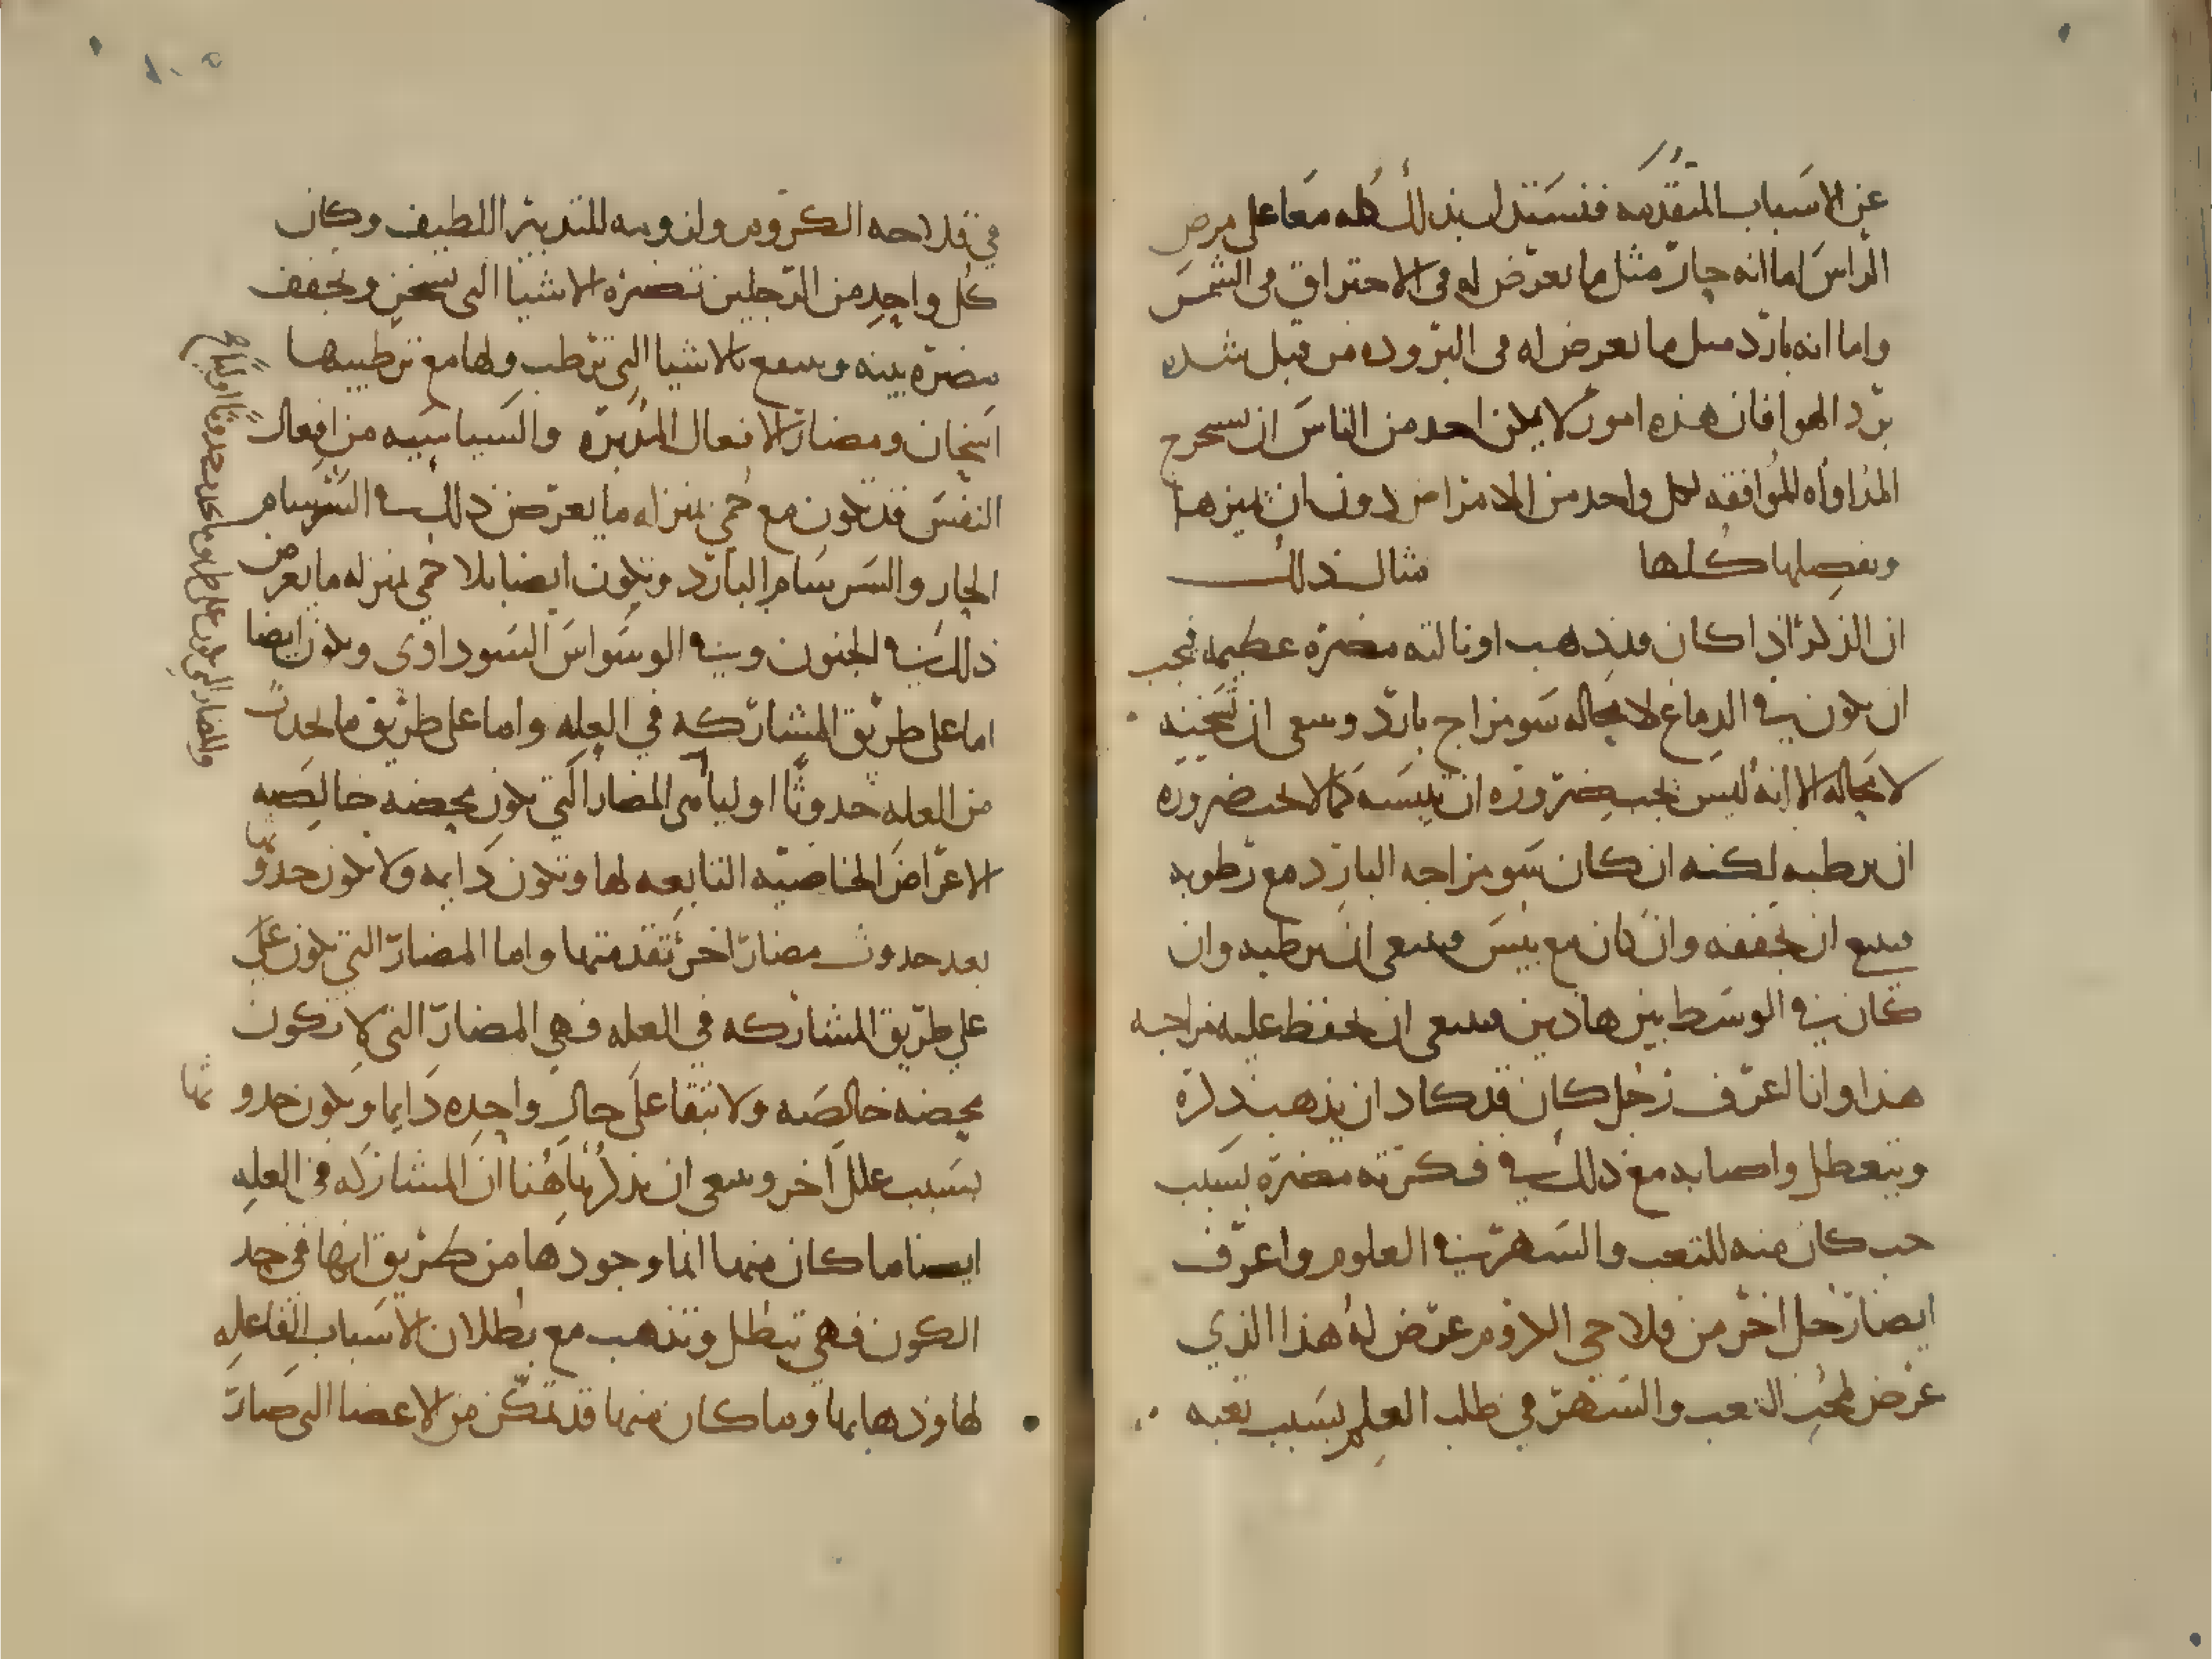 عن الاسباب المتقدمه فنستدل بذلك كله معا على مرض
الراس اما انه حار مثل ما يعرض له فى الاحتراق فى الشمس
واما انه بارد مثل ما يعرض له فى البروده من قبل شده
برد الهوا فان هذه امور لا يمكن احد من الناس ان يستخرج
المداواه الموافقه لكل واحد من الامراض دون ان يميزها
ويفصلها كلها مثال ذلك
ان الذكر اذا كان قد ذهب او نالته مضره عظيمه فيجب
ان يكون في الدماغ لا محاله سو مزاج بارد وينبغى ان تسخنه
لا محاله الا انه ليس يجب ضروره ان تيبسه كما لا يجب ضروره
ان يرطبه لكنه ان كان سو مزاجه البارد مع رطوبه
فينبغي ان تجففه وان كان مع يبس فينبغى ان يرطبه وان
كان في الوسط بين هاذين فينبغى ان تحفظ عليه مزاجه
هذا وانا اعرف رجل كان قد كاد ان يذهب ذكره
ويتعطل واصابه مع ذلك في فكرته مضره بسبب
حب كان منه للتعب والسهر في العلوم واعرف
ايضا رجل اخر من فلاحي الكروم عرض له هذا الذي
عرض لمحب التعب والسهر في طلب العلم بسبب تعبه
في فلاحه الكروم ولزومه للتدبير اللطيف وكان
كل واحد من الرجلين تضره الاشيا التى تسخن وتجفف
مضره بينه وينتفع بالاشيا التى ترطب ولها مع ترطيبها
اسخان ومضار الافعال المدبره والسياسيه من افعال
النفس قد تكون مع حمي بمنزله ما يعرض ذلك في السرسام
الحار والسرسام البارد وتكون ايضا بلا حمي بمنزله ما يعرض
ذلك في الجنون وفي الوسواس السوداوى ويكون ايضا
اما على طريق المشاركه في العله واما على طريق ما يحدث
من العله حدوثا اوليا المضار التي تكون محضه خالصه
الاعراض الخاصيه التابعه لها وتكون دايمه ولا يكون حدوثها
بعد حدوث مضار اخر تقدمتها واما المضار التي تكون على
على طريق المشاركه في العله فهي المضار التي لا تكون
محضه خالصه ولا تبقا على حال واحده دايما ويكون حدوثها
بسبب علل اخر وينبغى ان نذكر هاهنا ان المشاركه في العله
ايضا ما كان منها انما وجودها من طريق انها في حد
الكون فهي تبطل وتذهب مع بطلان الاسباب الفاعله
لها وذهابها وما كان منها قد تمكن من الاعضا التى صارت